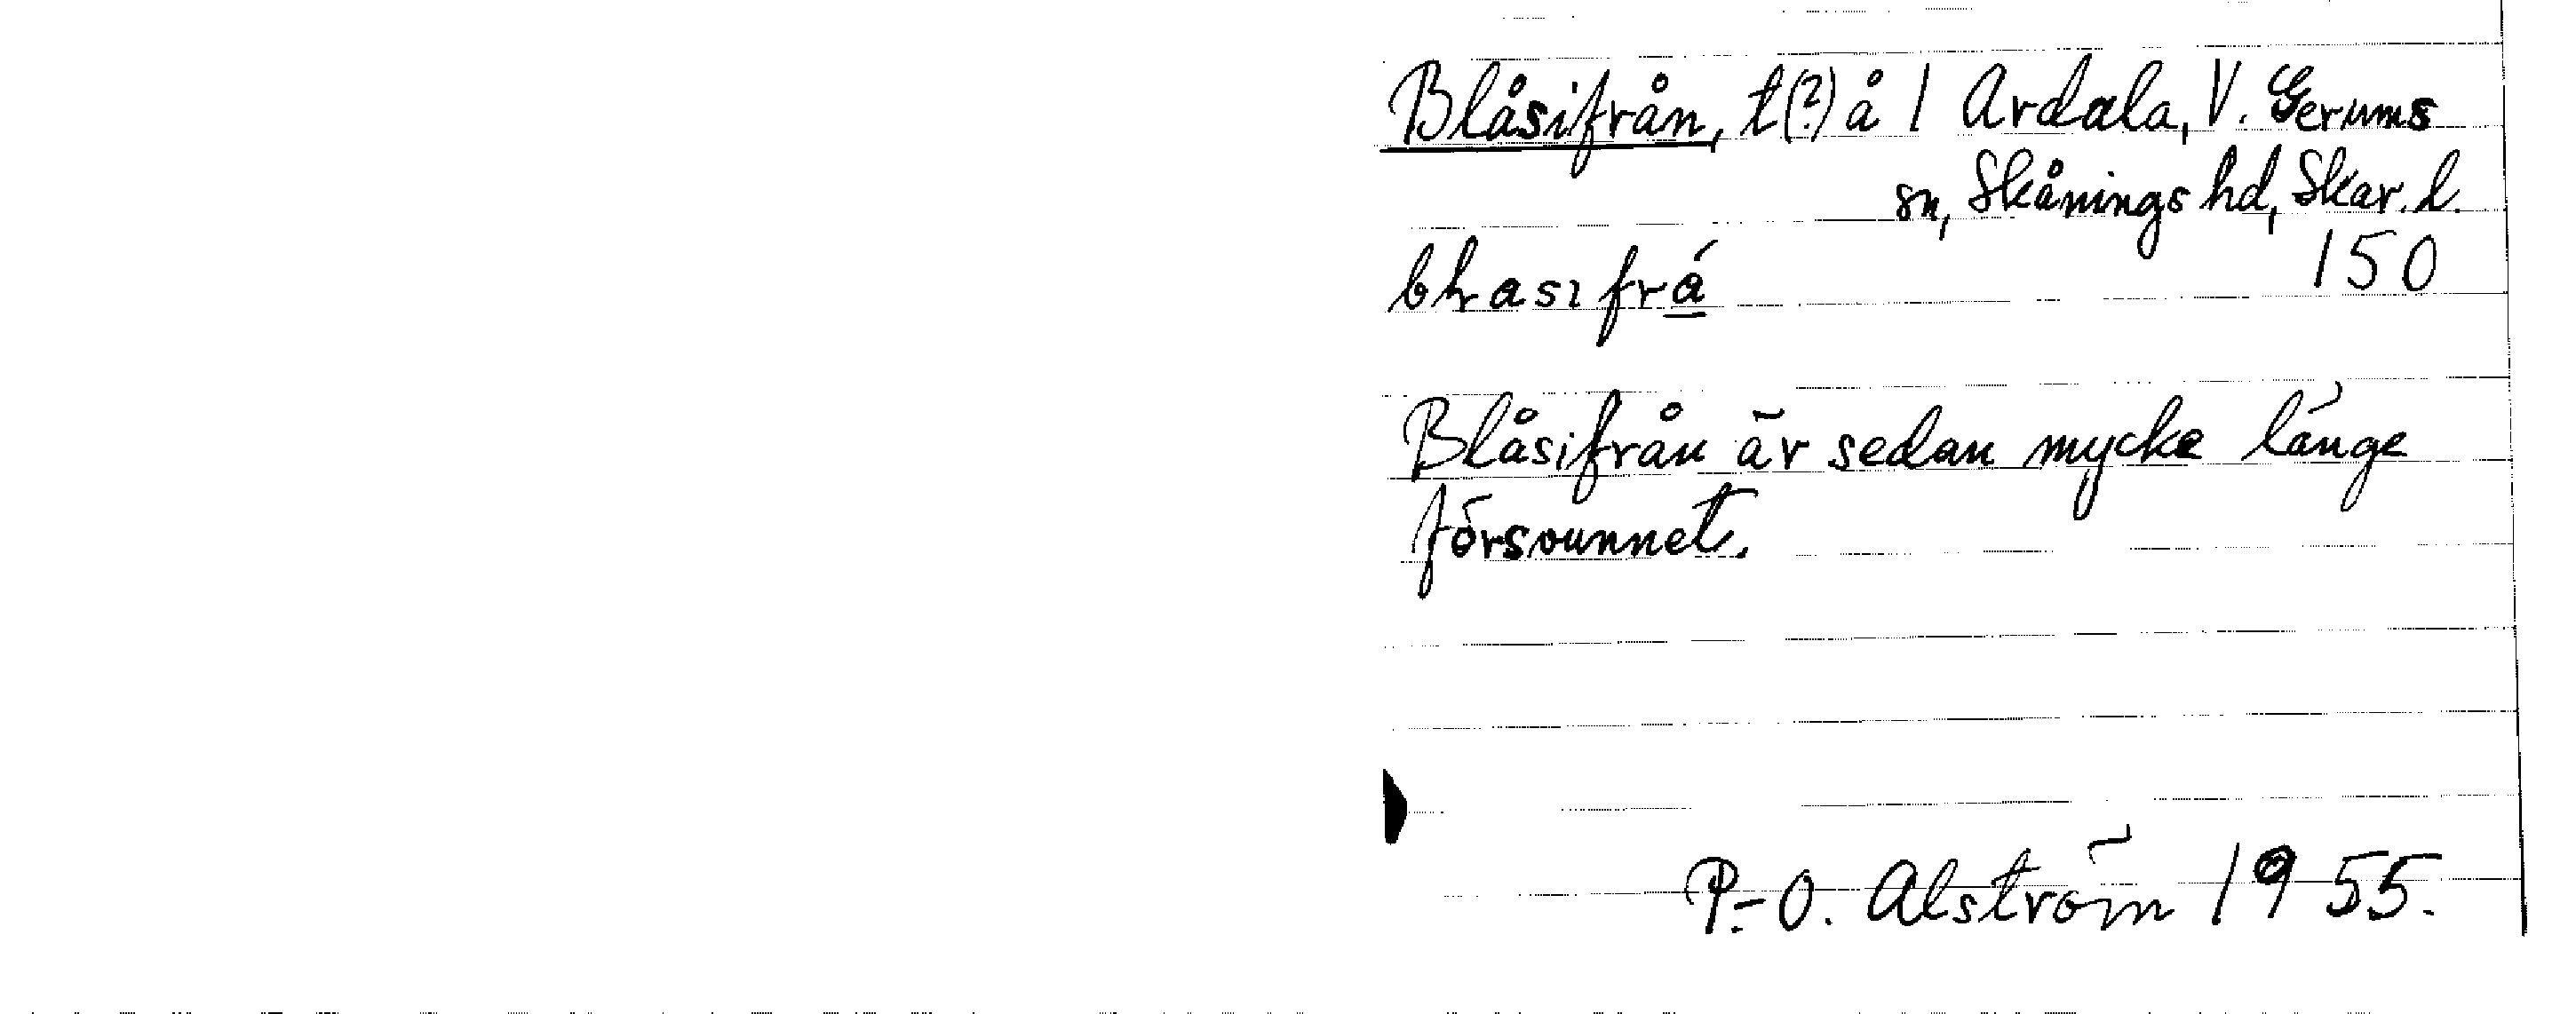 Blåsifrån, t(?) å 1 Ardala, V. Gerums
sn, Skånings hd, Skar. l.
150
frá
Blåsifrån är sedan mycke länge
försvunnet.
P.-O. Alström 1955.